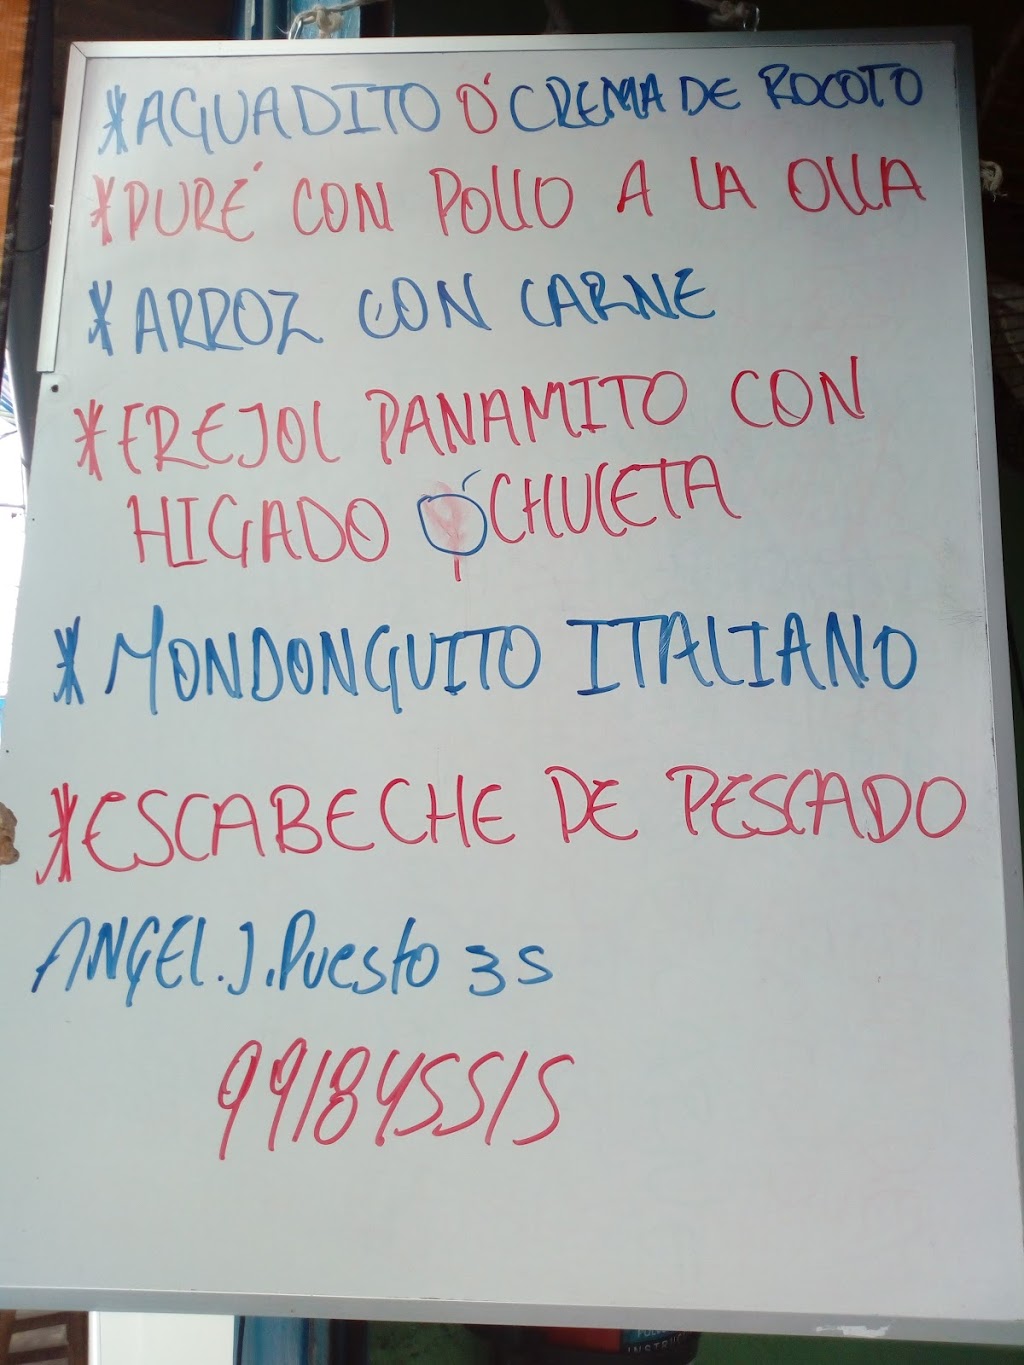 *AGUADITO Ó CREMA DE ROCOTO
*PURÉ CON POLLO A LA OLLA
*ARROZ CON CARNE
*FREJOL PANAMITO CON
HIGADO Ó CHULETA
*MONDONGUITO ITALIANO
*ESCABECHE DE PESCADO
ANGEL.J.Puesto 35
991845515
INSTRUC